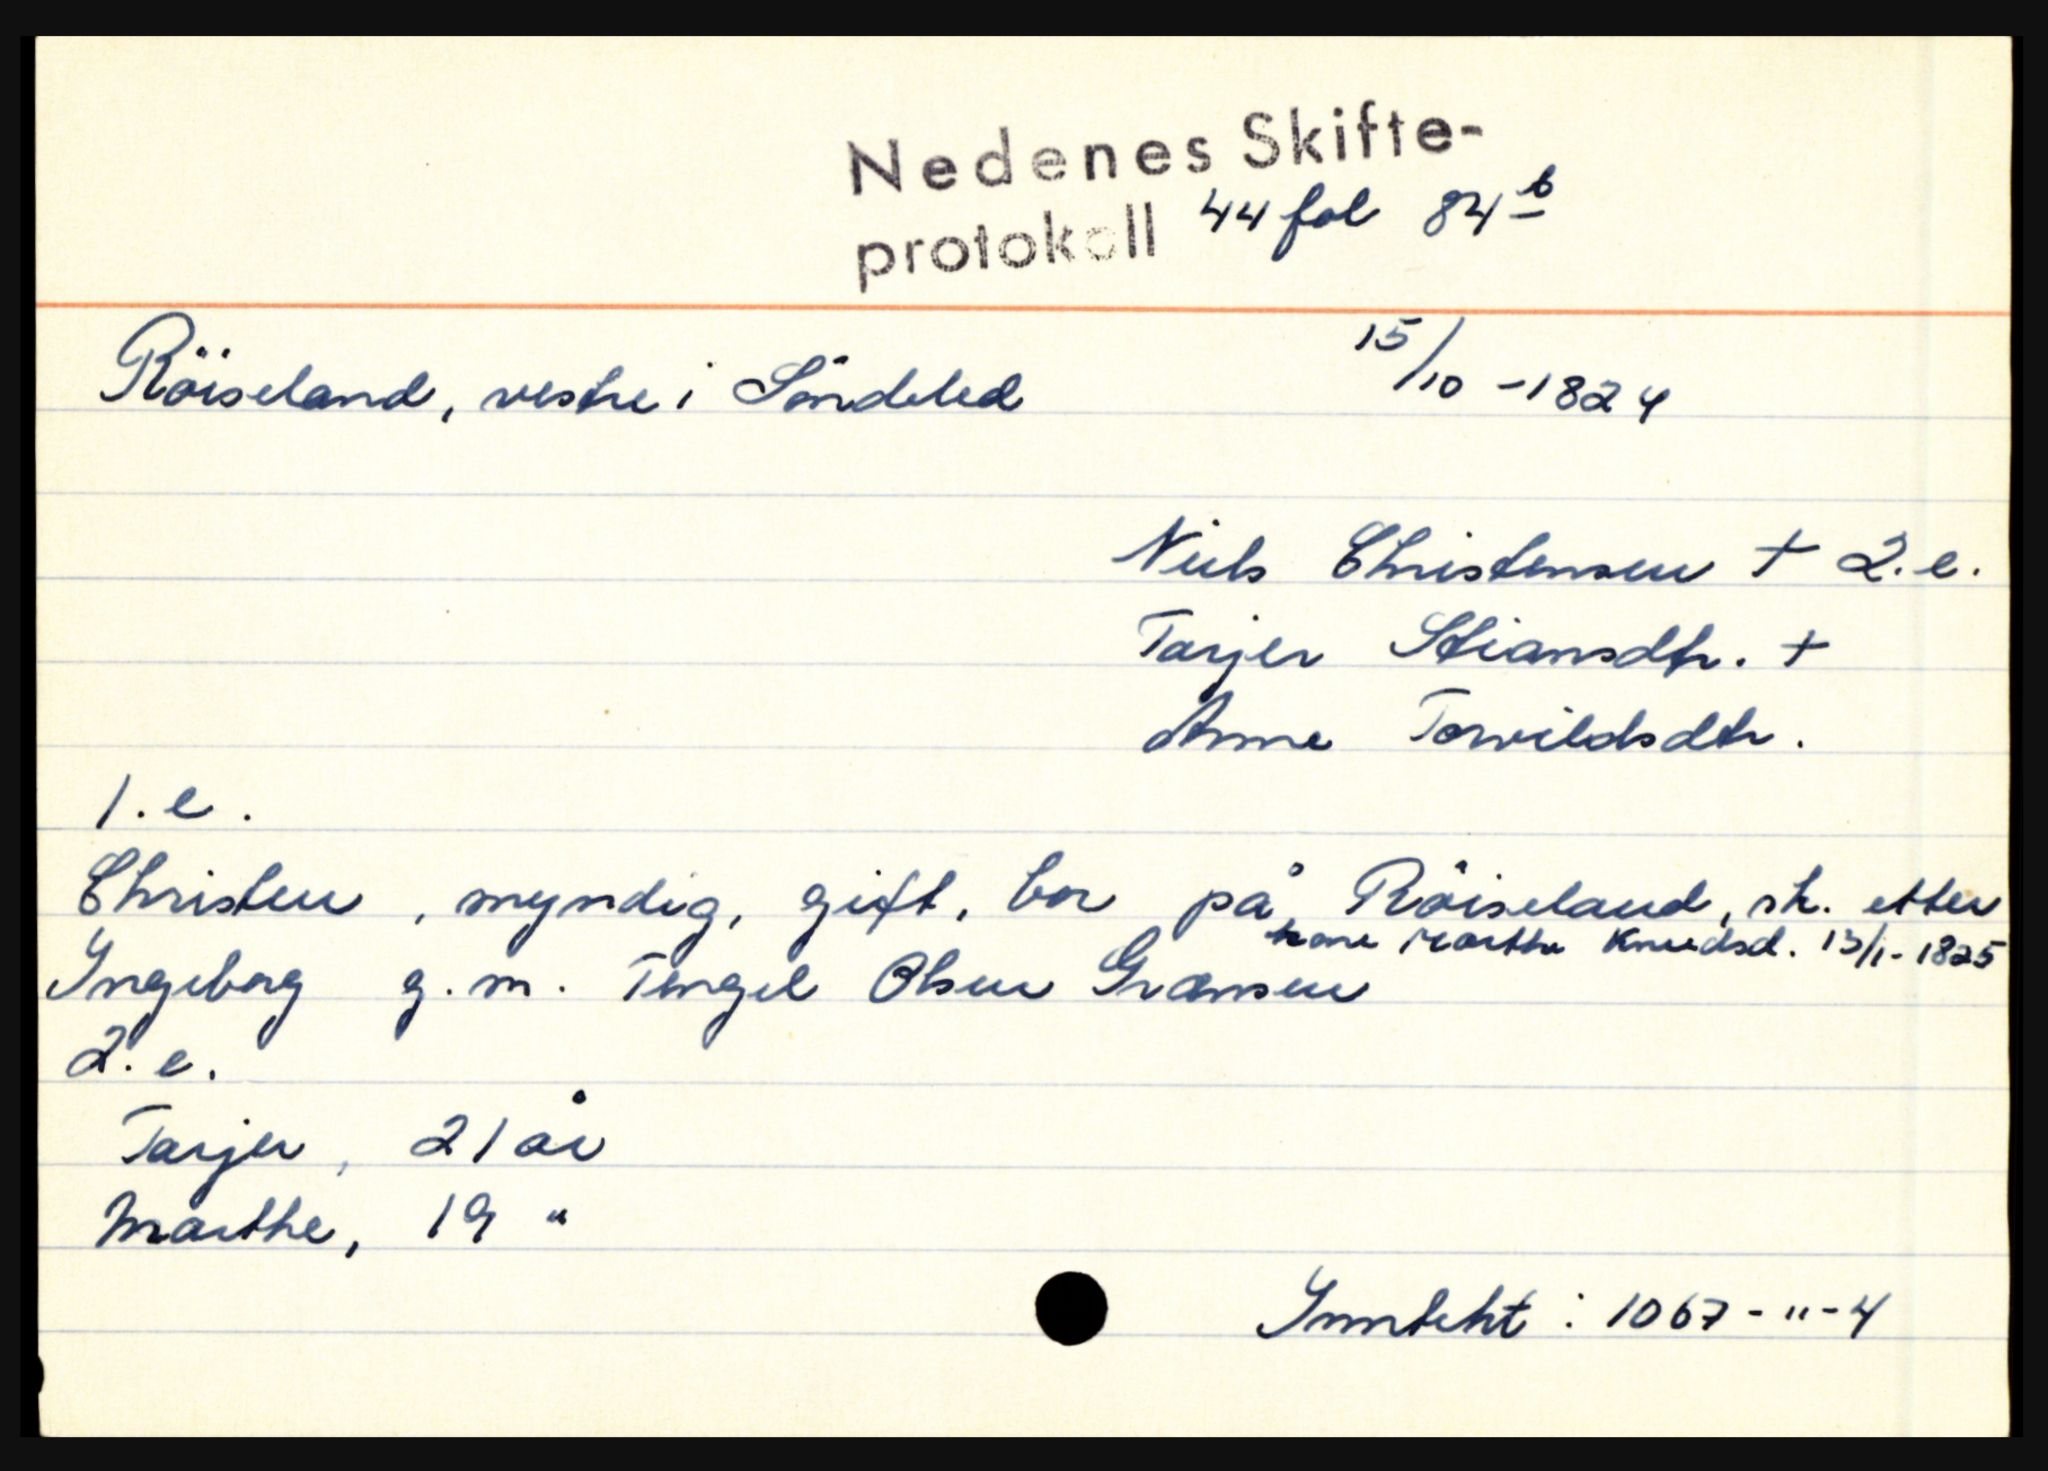 Nedenes Skifte-
protokoll 44 fol 84 b
Röiseland, vestre i Söndeled 15/10 - 1824
Niels Christensen + 2. e.
Tarjer Stiansdtr. +
Anne Torvildsdtr.
1. e.
Christen, myndig, gift, bor på Röiseland, sk. etter
kone Marthe Knudsd. 13/1 - 1825
Ingeborg g. m. Tengel Olsen Gramsen
2. e.
Tarjer, 21 år
Marthe, 19 "
Inntekt : 1067 - " - 4